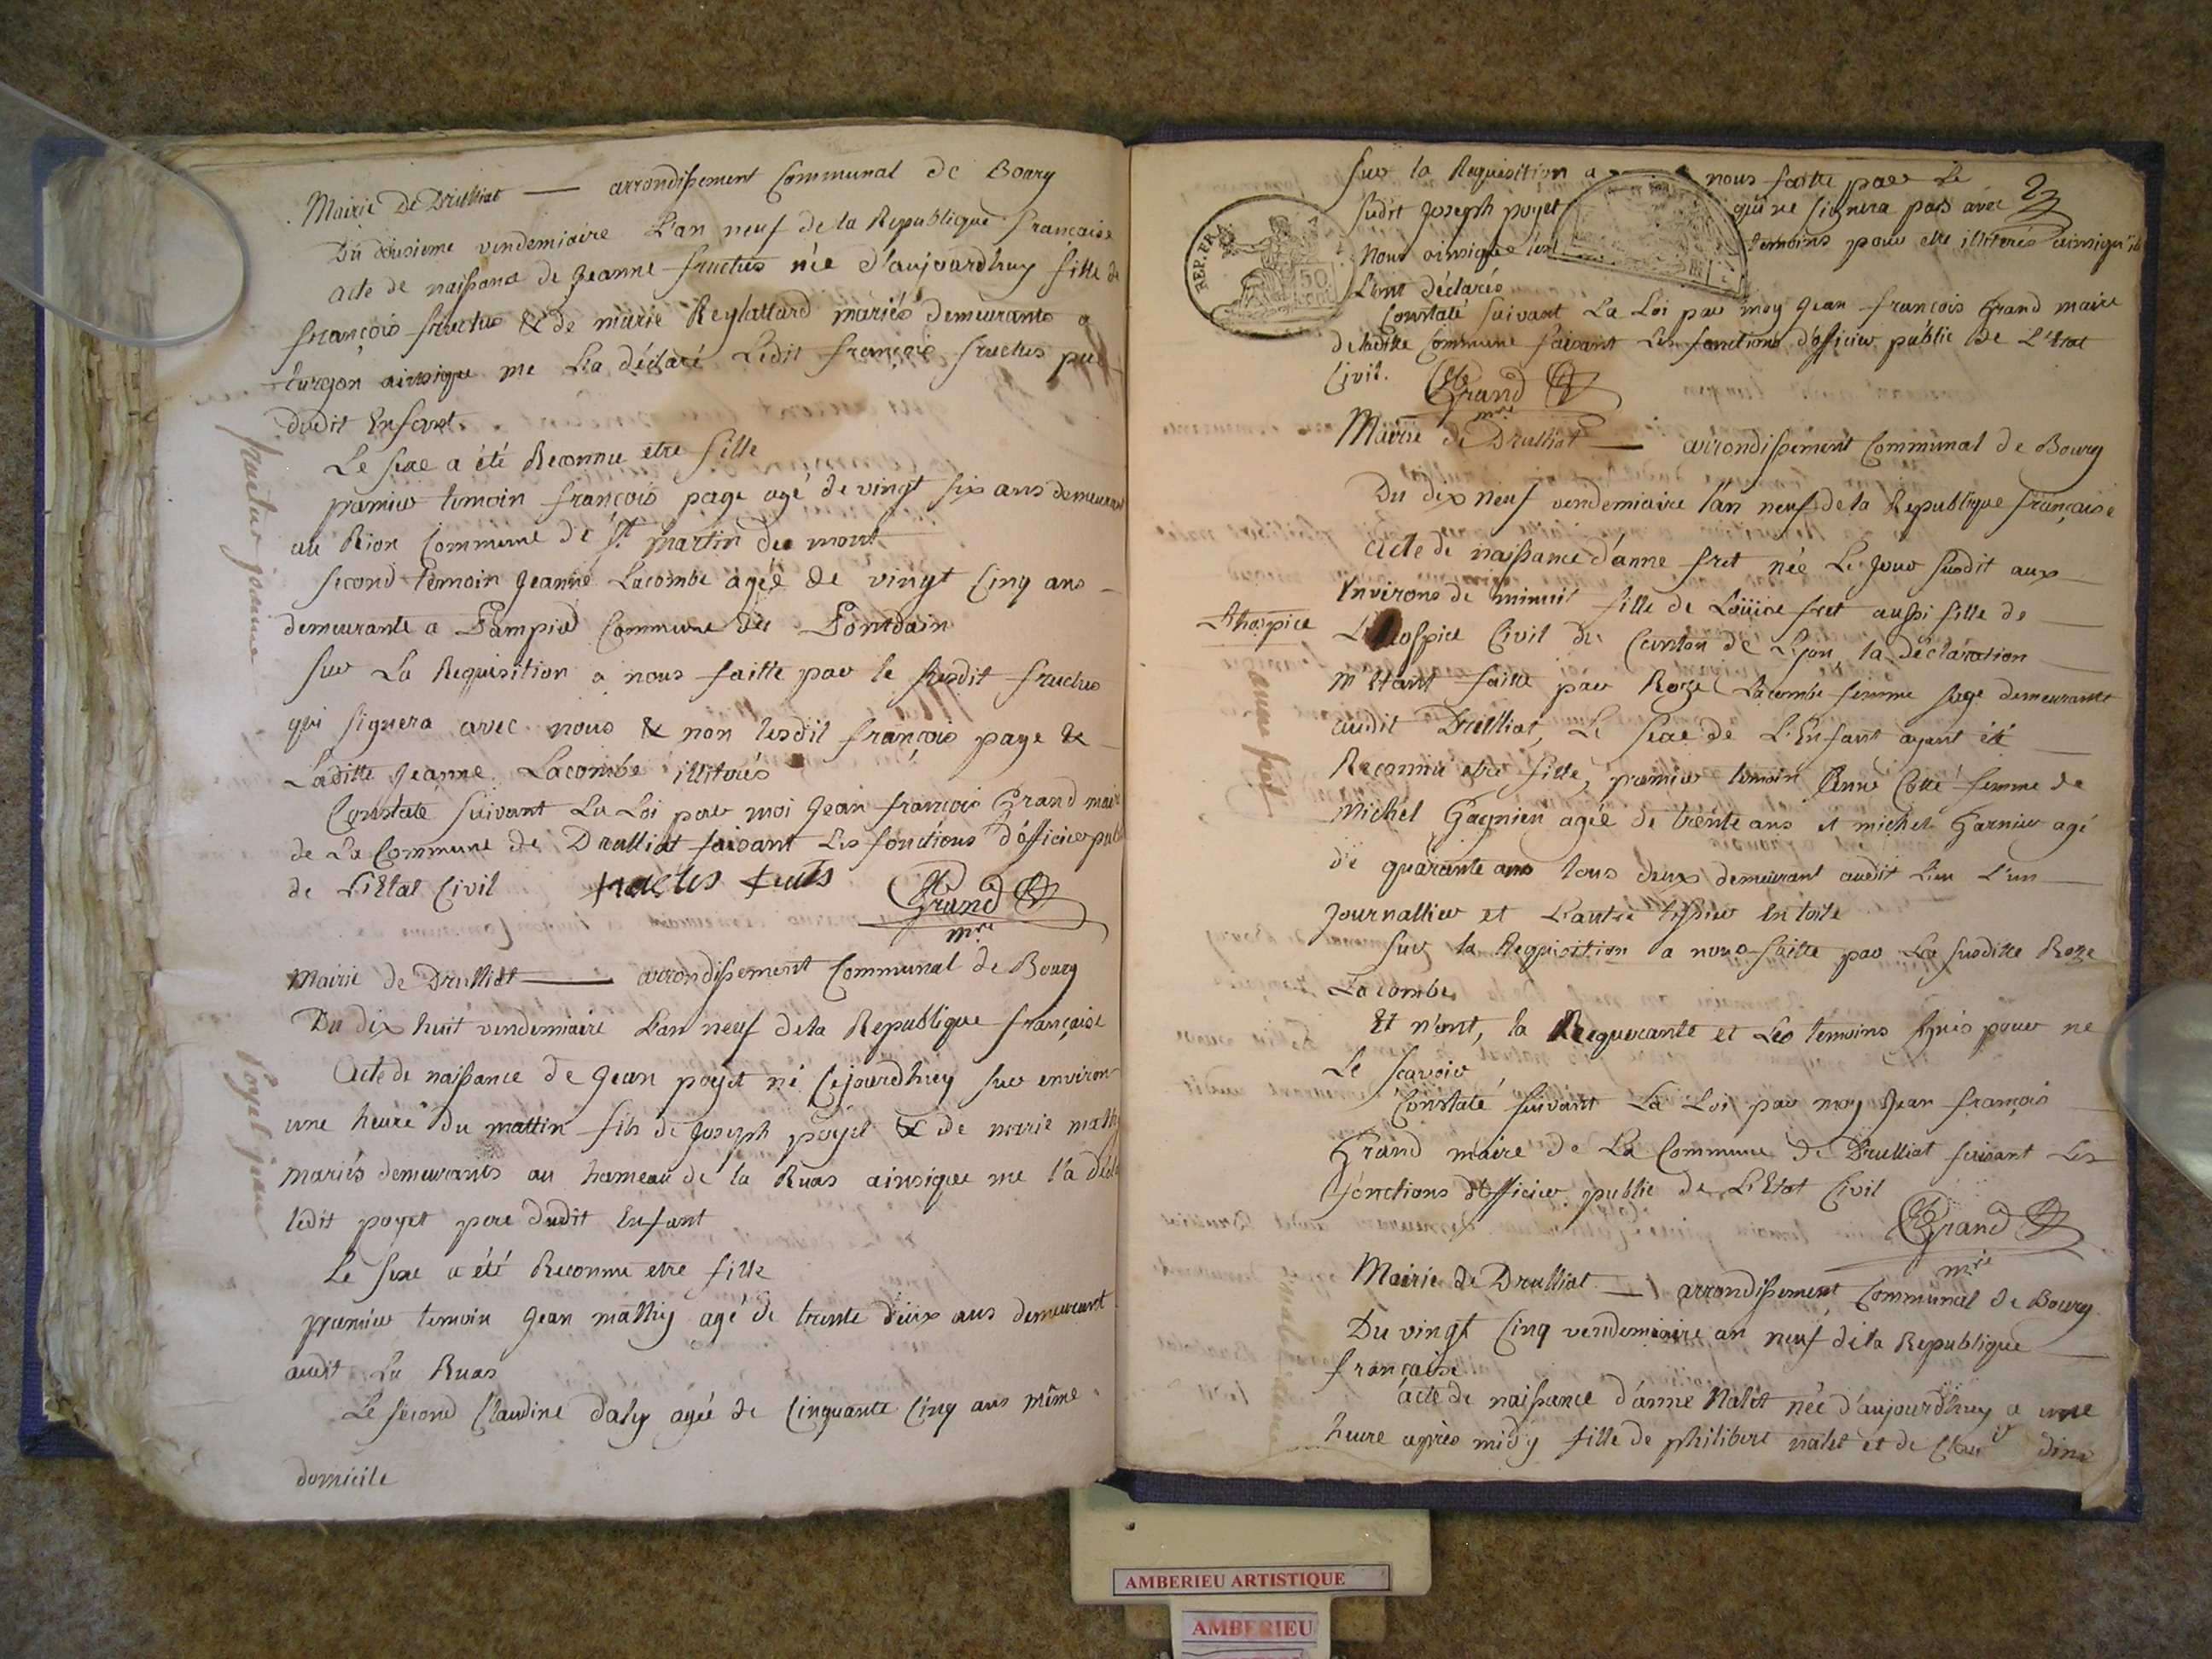 Mairie De Drulliat — arrondissement Communal de Bourg
Du dousieme vendemiaire L'an neuf de la Republique française
acte de naissance de Jeanne fructus née d'aujourdhuy fille de
françois fructus & de marie Reylattard mariés demeurants a
turgon ainsique me L'a déclaré Ledit françois fructus per
dudit Enfant.
Le sexe a été Reconnu etre fille
premier temoin françois page agé de vingt six ans demeurant
au Rion Commune de St. martin du mont
second temoin Jeanne Lacombe agée de vingt Cinq ans
demeurante a Pampied Commune du Pontdain
sur La Requisition a nous faitte par le susdit fructus
qui signera avec nous & non lesdit françois page &
Laditte Jeanne Lacombe illiterés
Constaté suivant La Loi par moi Jean françois Grand maire
de La Commune de Drulliat faisant Les fonctions d'officier publi
de L'Etat Civil
Grand
mre
Mairie de Drulliat — arrondissement Communal de Bourg
Du dix huit vendemiaire L'an neuf de la Republique française
Acte de naissance de Jean poyet né Cejourdhuy sur environ
une heure du mattin fils de Joseph poyet & de marie mathy
mariés demeurants au hameau de la Ruas ainsique me l'a décl
ledit poyet pere dudit Enfant
Le sexe a été Reconnu etre fille
premier temoin Jean mathy agé de trente deux ans demeurant
audit La Ruas
Le second Claudine daly agée de Cinquante Cinq ans même
domicile
fructus jeanne
Poyet jean
23
sur la Requisition a nous faitte par Le
sudit Joseph poyet qui ne signera pas avec
Nous ainsique les temoins pour etre illiterés ainsiqu'ils
L'ont déclarés
REP. FRA
50
Constaté suivant La Loi par moy Jean françois Grand maire
de laditte Commune faisant Les fonctions d'officier public de L'Etat
Civil.
Grand
mre
Mairie de Drulliat — arrondissement Communal de Bourg
Du dix neuf vendemiaire l'an neuf de la Republique française
Acte de naissance d'anne fret née Le Jour susdit aux
Environs de minuit fille de Loüise fret aussi fille de
Lhospice
L'hospice Civil du Canton de Lyon, la déclaration
m'etant faitte par Roze Lacombe femme sage demeurante
audit Drulliat, Le sexe de L'Enfant ayant été
Reconnu etre fille, premier temoin Anne Cotte femme de
Michel Gagnieu agée de trente ans et michel Garnier agé
de quarante ans tous deux demeurant audit Lieu L'un
Journallier et L'autre tissier En toile
sur la Requisition a nous faitte par La susditte Roze
Lacombe
Et n'ont, la Requerante et Les temoins signés pour ne
Le scavoir
Constaté suivant La Loi par moy Jean françois
Grand maire de La Commune de Drulliat faisant Les
fonctions d'officier public de L'Etat Civil
Grand
mre
anne fret
Mairie de Drulliat — arrondissement Communal de Bourg
Du vingt Cinq vendemiaire an neuf de la Republique
française
acte de naissance d'anne Nalet née d'aujourdhuy a une
heure après midy fille de philibert nalet et de Clau dine
AMBERIEU ARTISTIQUE
AMBERIEU